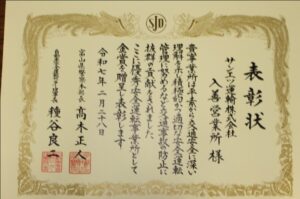 SJD
表彰状
サンエツ運輸株式会社
入善営業所 様
貴事業所は平素から交通安全に深い
理解を示し積極的かつ適切な安全運転
管理に努めるなど交通事故の防止に
抜群の貢献をされました
ここに優秀安全運転事業所として
金賞を贈呈し表彰します
令和七年二月二十八日
富山県警察本部長 高木正人
自動車安全運転センター理事長 種谷良二